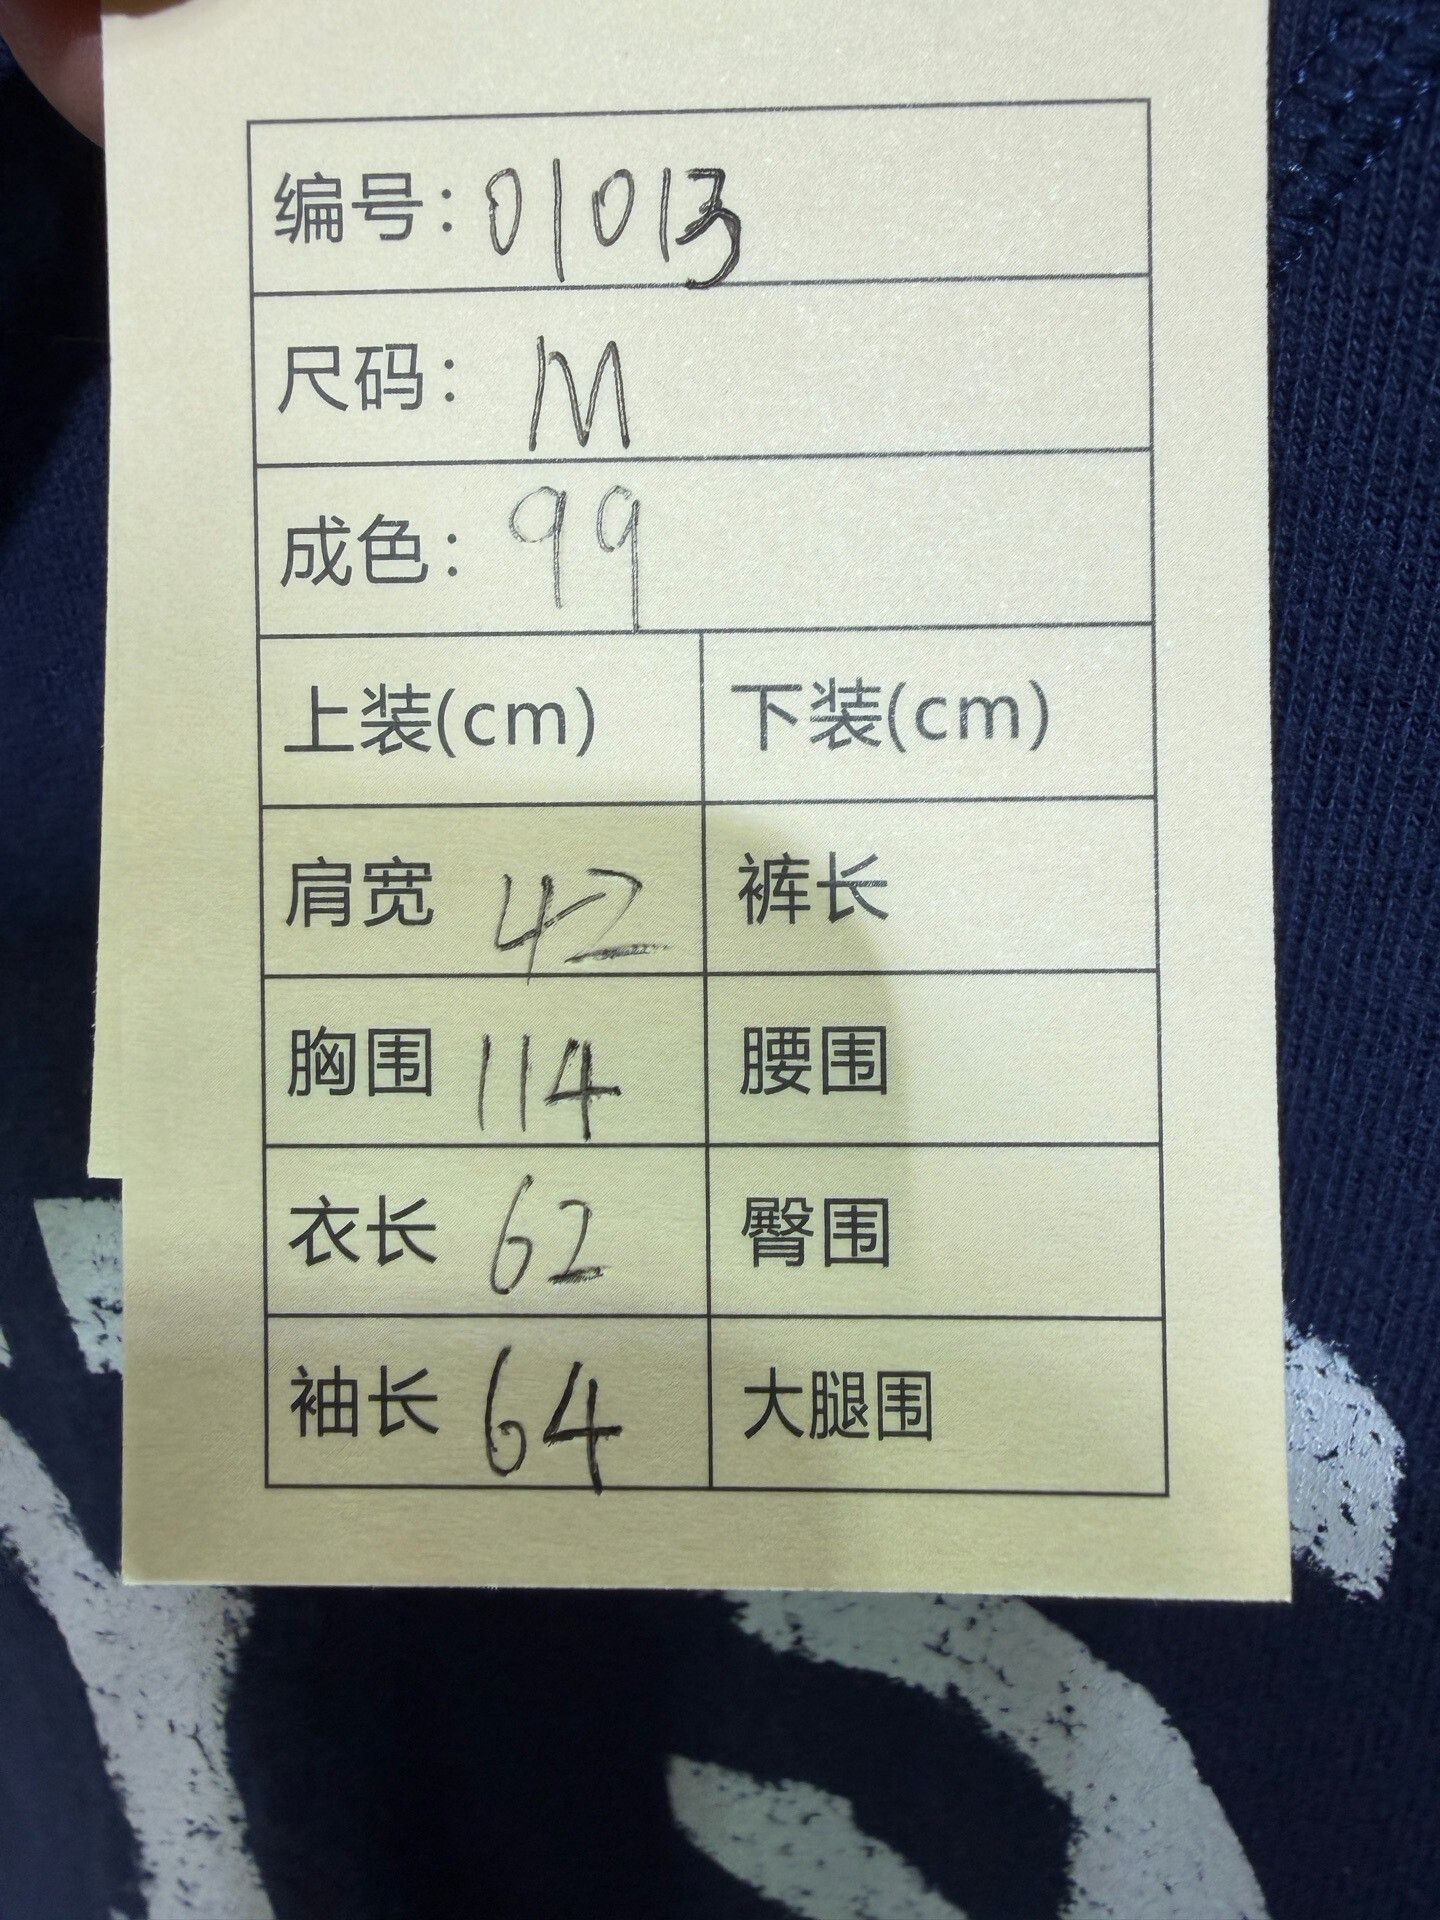 编号：01013
尺码：M
成色：99
上装(cm) 下装(cm)
肩宽 42 裤长
胸围 114 腰围
衣长 62 臀围
袖长 64 大腿围